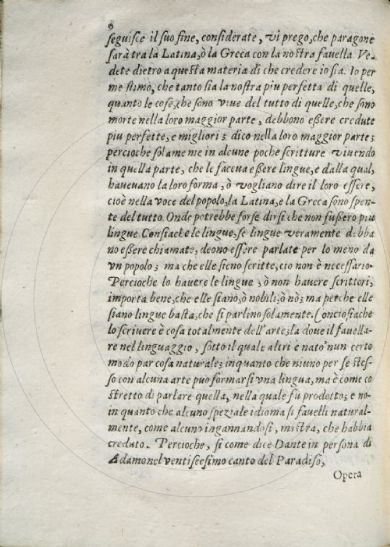 6
seguisce il suo fine, considerate, vi prego, che paragone
sarà tra la Latina, ò la Greca con la nostra favella Ve-
dete dietro a questa materia di che credere io sia. Io per
me stimo, che tanto sia la nostra piu perfetta di quelle,
quanto le cose, che sono vive del tutto di quelle, che sono
morte nella loro maggior parte, debbono eßere credute
piu perfette, e migliori: dico nella loro maggior parte;
percioche solamẽte in alcune poche scritture viuendo
in quella parte, che le faceua eßere lingue, e dalla qual,
haueuano la loro forma, ò vogliano dire il loro essere,
cioè nella voce del popolo, la Latina, e la Greca sono spen-
te del tutto. Onde potrebbe forse dirsi che non fußero piu
lingue. Consiache le lingue, se lingue veramente debba
no eßere chiamate, deono essere parlate per lo meno da
vn popolo; ma che elle sieno scritte, cio non è necessario.
Percioche lo hauere le lingue, ò non hauere scrittori,
importa bene, che elle siano, ò nobili, ò nò; ma perche elle
siano lingue basta, che si parlino solamente. Conciosiache
lo scriuere è cosa totalmente dell'arte; la doue il fauella-
re nel linguaggio, sotto il quale altri è nato'nun certo
modo par cosa naturale; inquanto che niuno per se stes-
so con alcuna arte puo formarsi vna lingua, ma è come co
stretto di parlare quella, nella quale fù prodotto; e no-
in quanto che alcuno speziale idioma si fauelli natural-
mente, come alcuno ingannandosi, mostra, che habbia
creduto. Percioche, si come dice Dante in persona di
Adamo nel ventiseesimo canto del Paradiso,
Opera